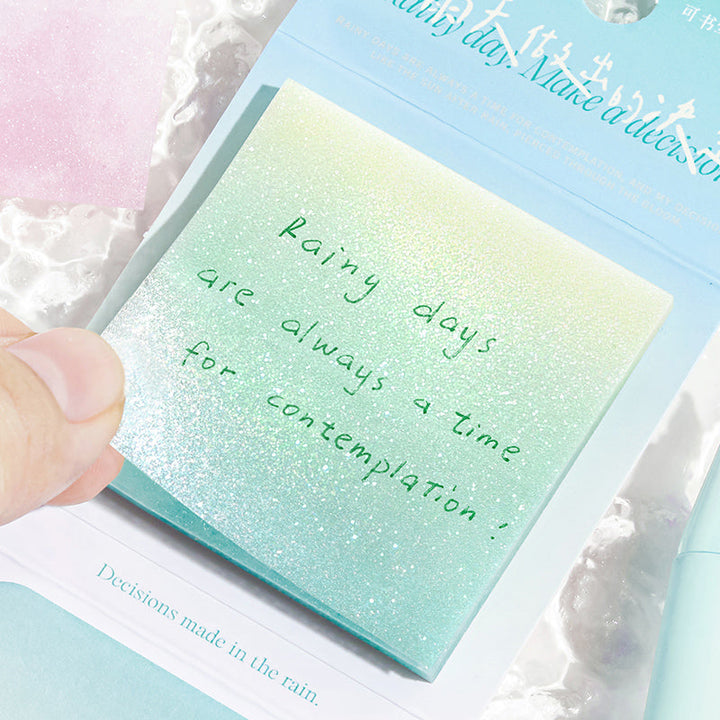 可书写
雨天做出的决
Rainy day. Make a decision
RAINY DAYS ARE ALWAYS A TIME FOR CONTEMPLATION, AND MY DECISION
LIKE THE SUN AFTER RAIN, PIERCED THROUGH THE GLOOM.
Rainy days
are always a time
for contemplation!
Decisions made in the rain.